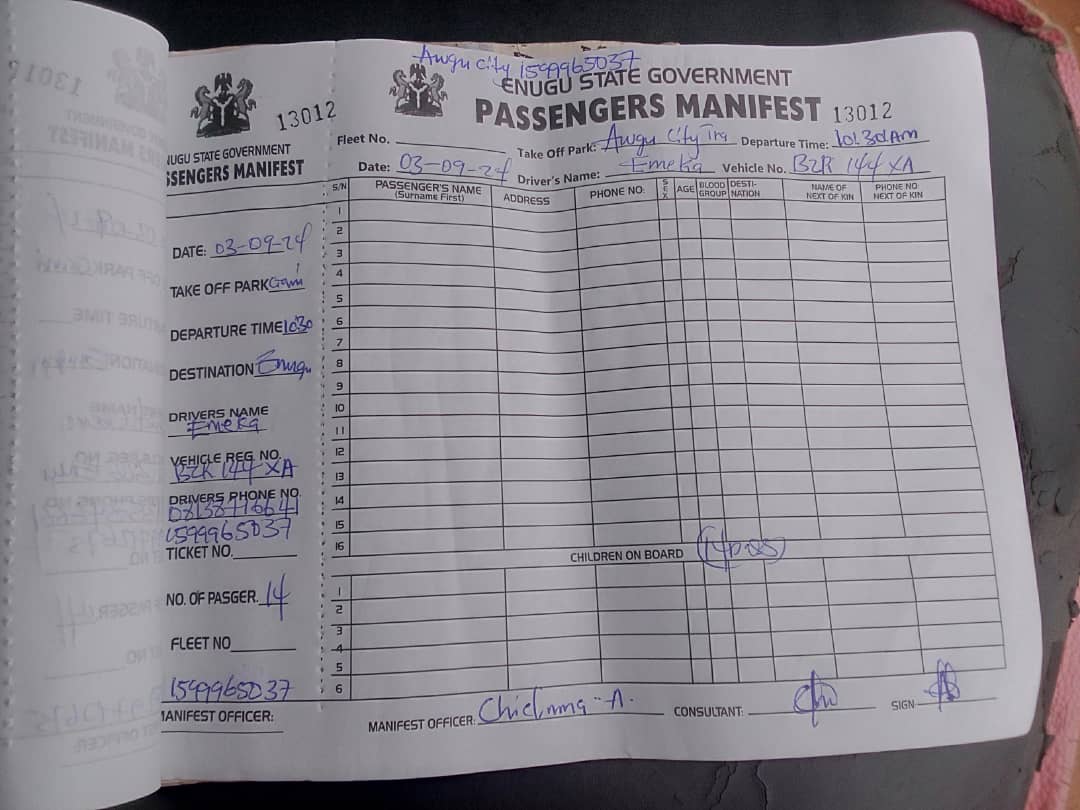 13012
ENUGU STATE GOVERNMENT
PASSENGERS MANIFEST
DATE: 03-09-24
TAKE OFF PARK
DEPARTURE TIME 10:30
DESTINATION Enugu
DRIVERS NAME
Emeka
VEHICLE REG. NO.
BZR 144 XA
DRIVERS PHONE NO.
1599965037
TICKET NO.
NO. OF PASGER. 14
FLEET NO
1599965037
MANIFEST OFFICER:
Awgu City 1599965037
ENUGU STATE GOVERNMENT
PASSENGERS MANIFEST 13012
Fleet No. Take Off Park: Awgu City Tra Departure Time: 10:30AM
Date: 03-09-24 Driver's Name: Emeka Vehicle No. BZR 144 XA
S/N PASSENGER'S NAME (Surname First) ADDRESS PHONE NO: SEX AGE BLOOD GROUP DESTI-NATION NAME OF NEXT OF KIN PHONE NO. NEXT OF KIN
1
2
3
4
5
6
7
8
9
10
11
12
13
14
15
16
CHILDREN ON BOARD
1
2
3
4
5
6
MANIFEST OFFICER: A. CONSULTANT: SIGN